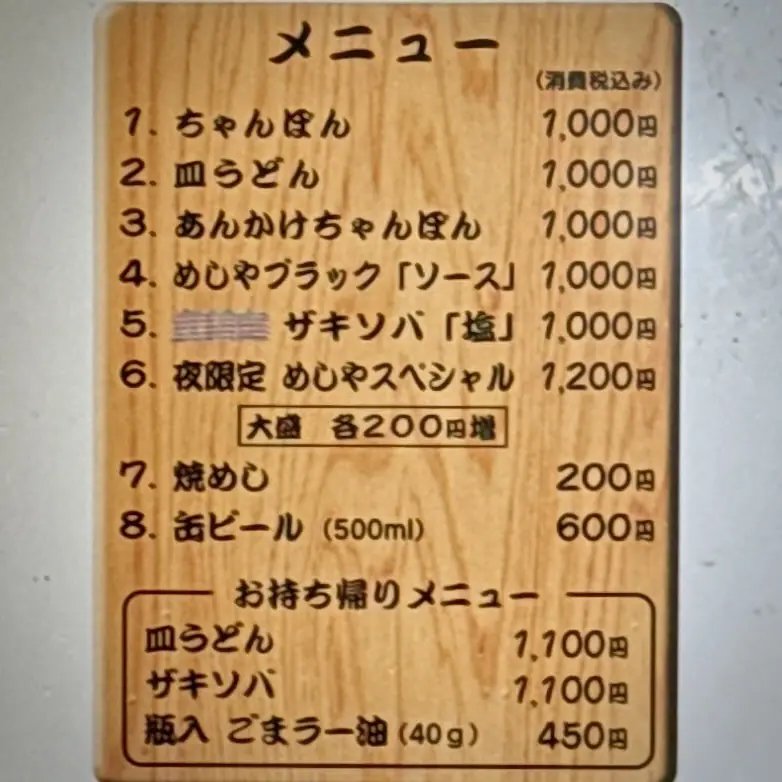 メニュー
(消費税込み)
1. ちゃんぽん 1,000円
2. 皿うどん 1,000円
3. あんかけちゃんぽん 1,000円
4. めしやブラック「ソース」 1,000円
5. ザキソバ「塩」 1,000円
6. 夜限定 めしやスペシャル 1,200円
大盛 各200円増
7. 焼めし 200円
8. 缶ビール (500ml) 600円
お持ち帰りメニュー
皿うどん 1,100円
ザキソバ 1,100円
瓶入 ごまラー油 (40g) 450円